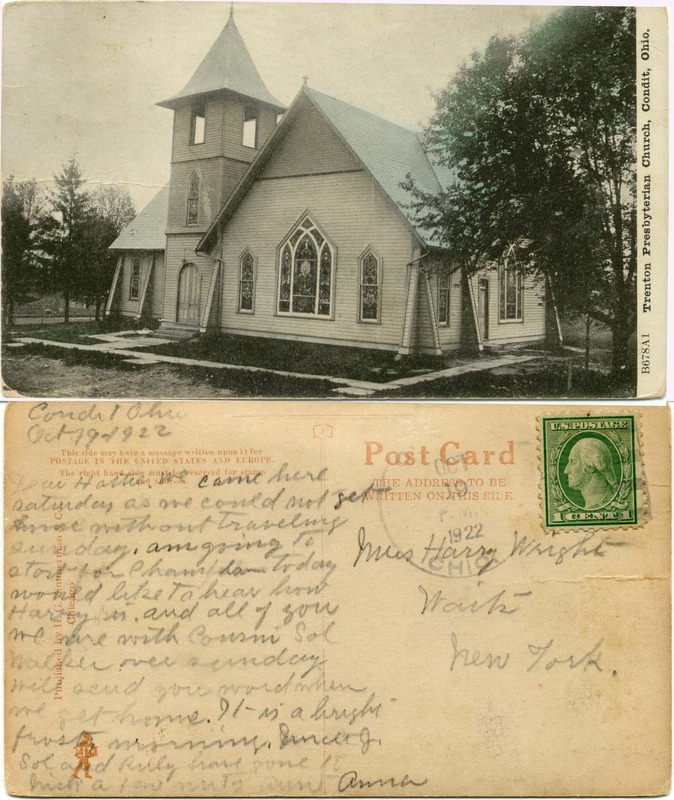 Trenton Presbyterian Church, Condit, Ohio.
B678A1
Condit Ohio
Oct 19-1922
This side may have a message written upon it for
POSTAGE IN THE UNITED STATES AND EUROPE.
The right hand side must be reserved for stamp
Post Card
THE ADDRESS TO BE
WRITTEN ON THIS SIDE.
U.S. POSTAGE
1 CENT 1
OCT
P.M.
1922
OHIO
Dear Hattie We came here
saturday as we could not get
home without traveling
sunday. am going to
start for today
would like to hear how
Harry is. and all of you
we are with Cousin Sol
Walker over sunday
will send you word when
we get home. It is a bright
frosty morning. Uncle J.
Sol and Ruly have gone to
a few nuts Aunt Anna
Mrs Harry Wright
Waits
New York.
Published by
Chicago